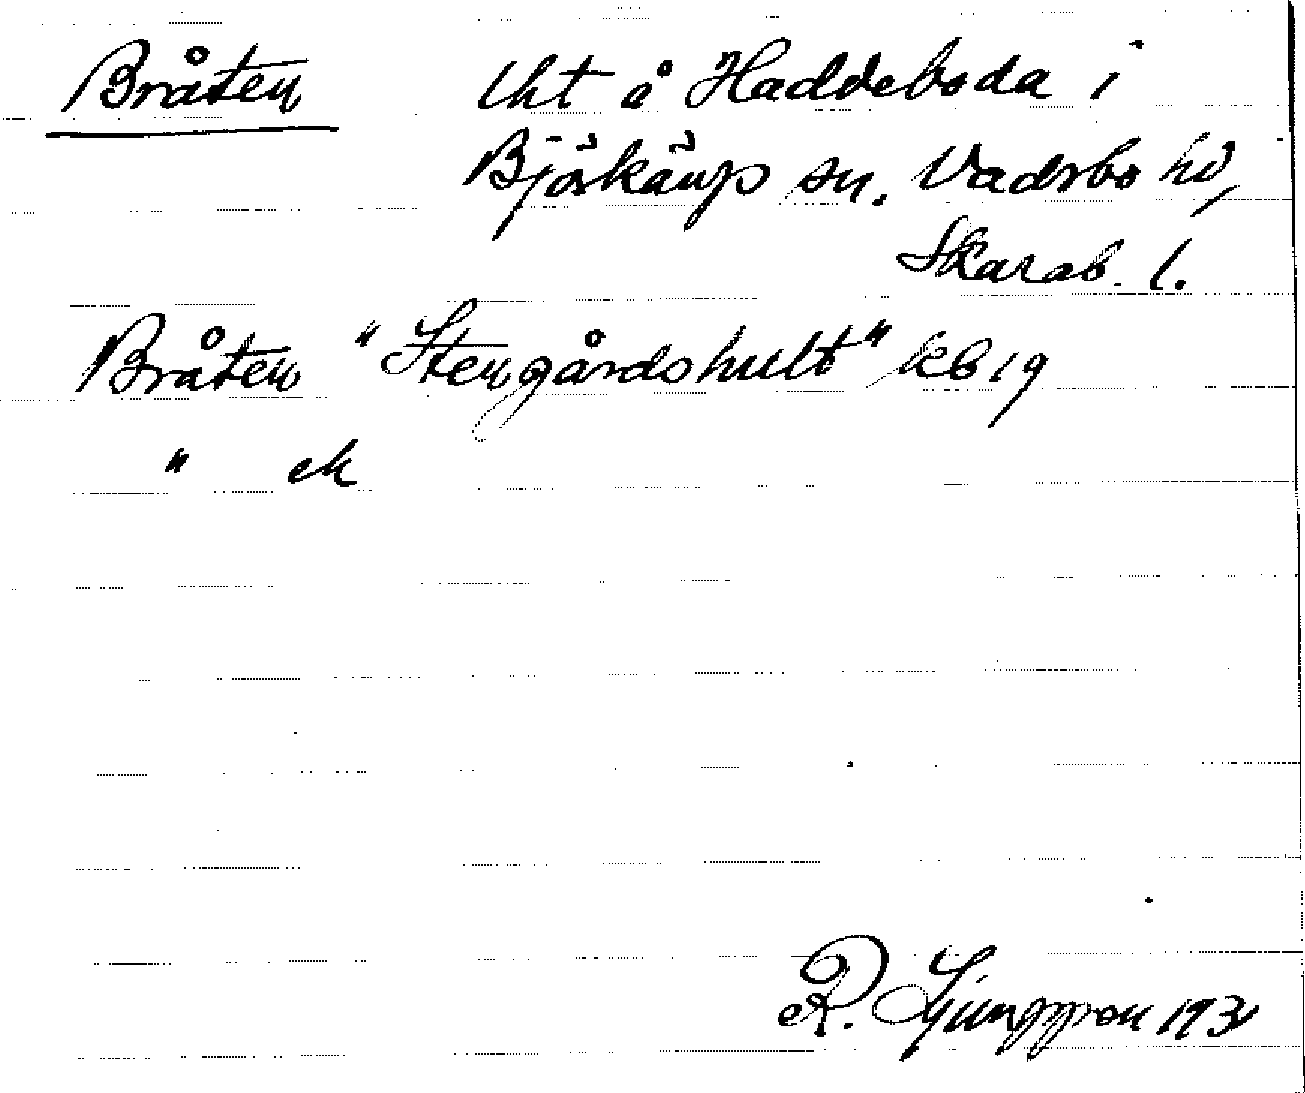 Bråten lht å Haddeboda i
Björkäng sn. Vadsbo hd,
Skarab. l.
Bråten "Stengårdshult" kb 19
" ek
R. Ljunggren 193